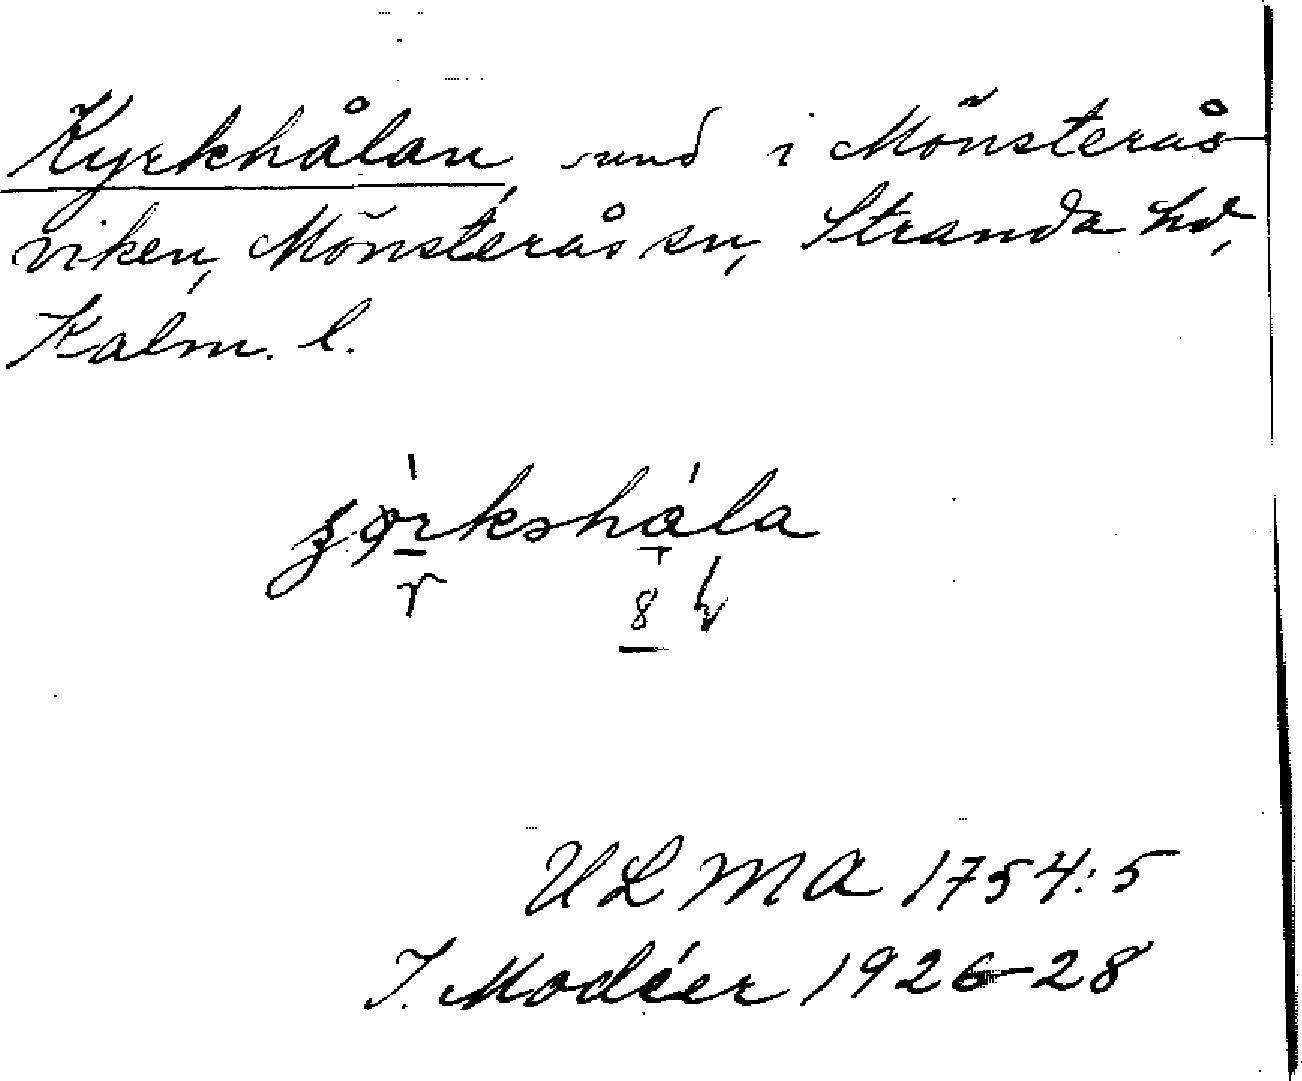 Kyrkhålan, sund i Mönsterås-
viken, Mönsterås sn, Stranda hd,
Kalm. l.
UL MA 1754:5
I. Modéer 1926-28